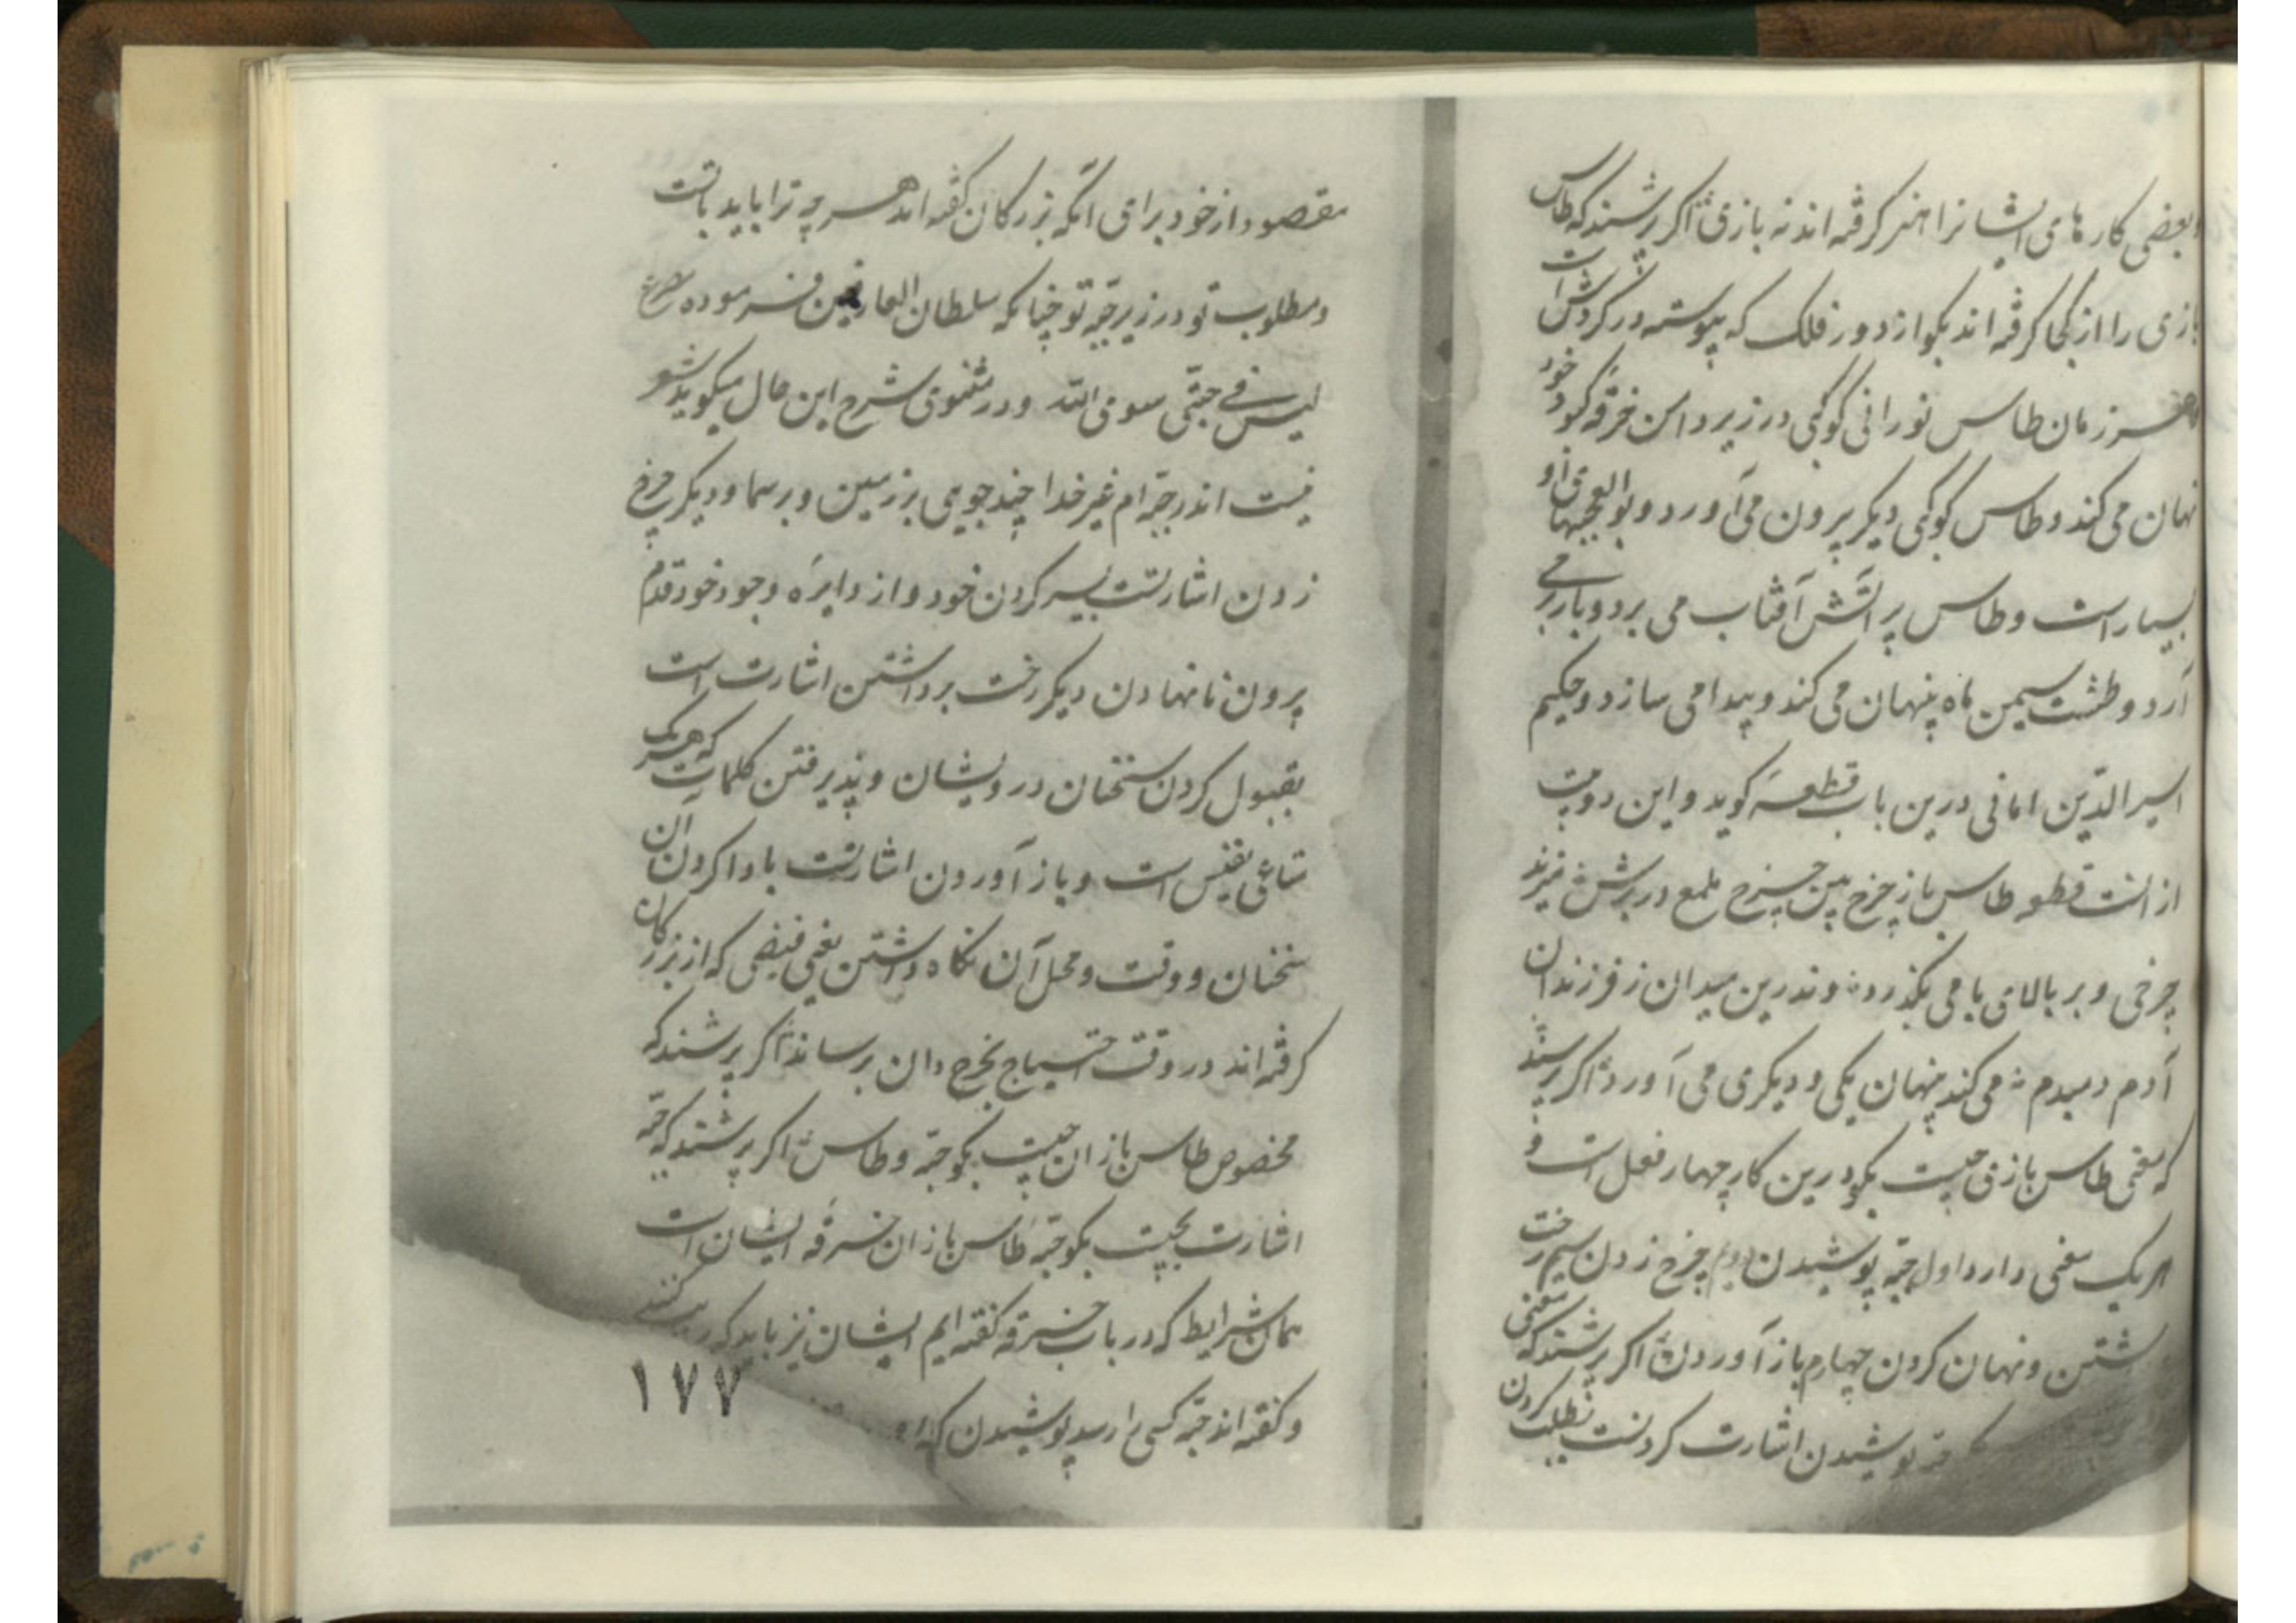 و بعضی کارهای ایشانرا هنر کرفته اند نه بازی اکر پرسند که طاس
بازی را از کجا کرفته اند بکو از دور فلک که پیوسته در کردش است
و هر زمان طاس نورانی کوکبی در زیر دامن خرقه کبود خود
نهان می کند و طاس کوکبی دیکر پرون می آورد و بوالعجبیهای او
بسیار است و طاس پر آتش آفتاب می برد و باز می
آرد و طشت سیمین ماه پنهان می کند و پیدا می سازد و حکیم
اسیر الدین امانی درین باب قطعهٔ کوید و این دو بیت
از انست قطعه طاس باز چرخ بین چرخ ملمع در برش میزند
چرخی و بر بالای بامی بکذرد وندرین میدان ز فرزندان
آدم دمبدم می کند پنهان یکی و دیکری می آورد اکر پرسند
که معنی طاس بازی چیست بکو درین کار چهار فعل است و
هر یک معنی دارد اول جبه پوشیدن دویم چرخ زدن سیم رخت
شتن ونهان کردن چهارم باز آوردن اکر پرسند که معنی
پوشیدن اشارت کردنست بطلب کردن
مقصود از خود برای آنکه بزرکان کفته اند هر چه ترا باید باتست
و مطلوب تو در زیر جبه تو چنانکه سلطان العارفین فرموده مصرع
لیس فی جبتی سوی الله و در مثنوی شرح این حال میکوید شعر
نیست اندر جبه ام غیر خدا چند جویی بر زمین و بر سما و دیکر چرخ
زدن اشارتست بسیر کردن خود و از دایره وجود خود قدم
پرون نانهادن دیکر رخت برداشتن اشارت است
بقبول کردن سخنان درویشان و پذیرفتن کلمات که هر یک
متاعی نفیس است و باز آوردن اشارتست بادا کردن آن
سخنان و وقت و محل آن نکاه داشتن یعنی فیضی که از بزرکان
کرفته اند در وقت احتیاج بخرج دان برساند اکر پرسند که
مخصوص طاس بازان چیست بکو جبه و طاس اکر پرسند که جبه
اشارت بچیست بکو جبه طاس بازان خرقه ایشان است
همان شرایط که در باب خرقه کفته ایم ایشان نیز باید که رعایت کنند
و کفته اند جبه کسی را رسد پوشیدن که او
۱۷۷